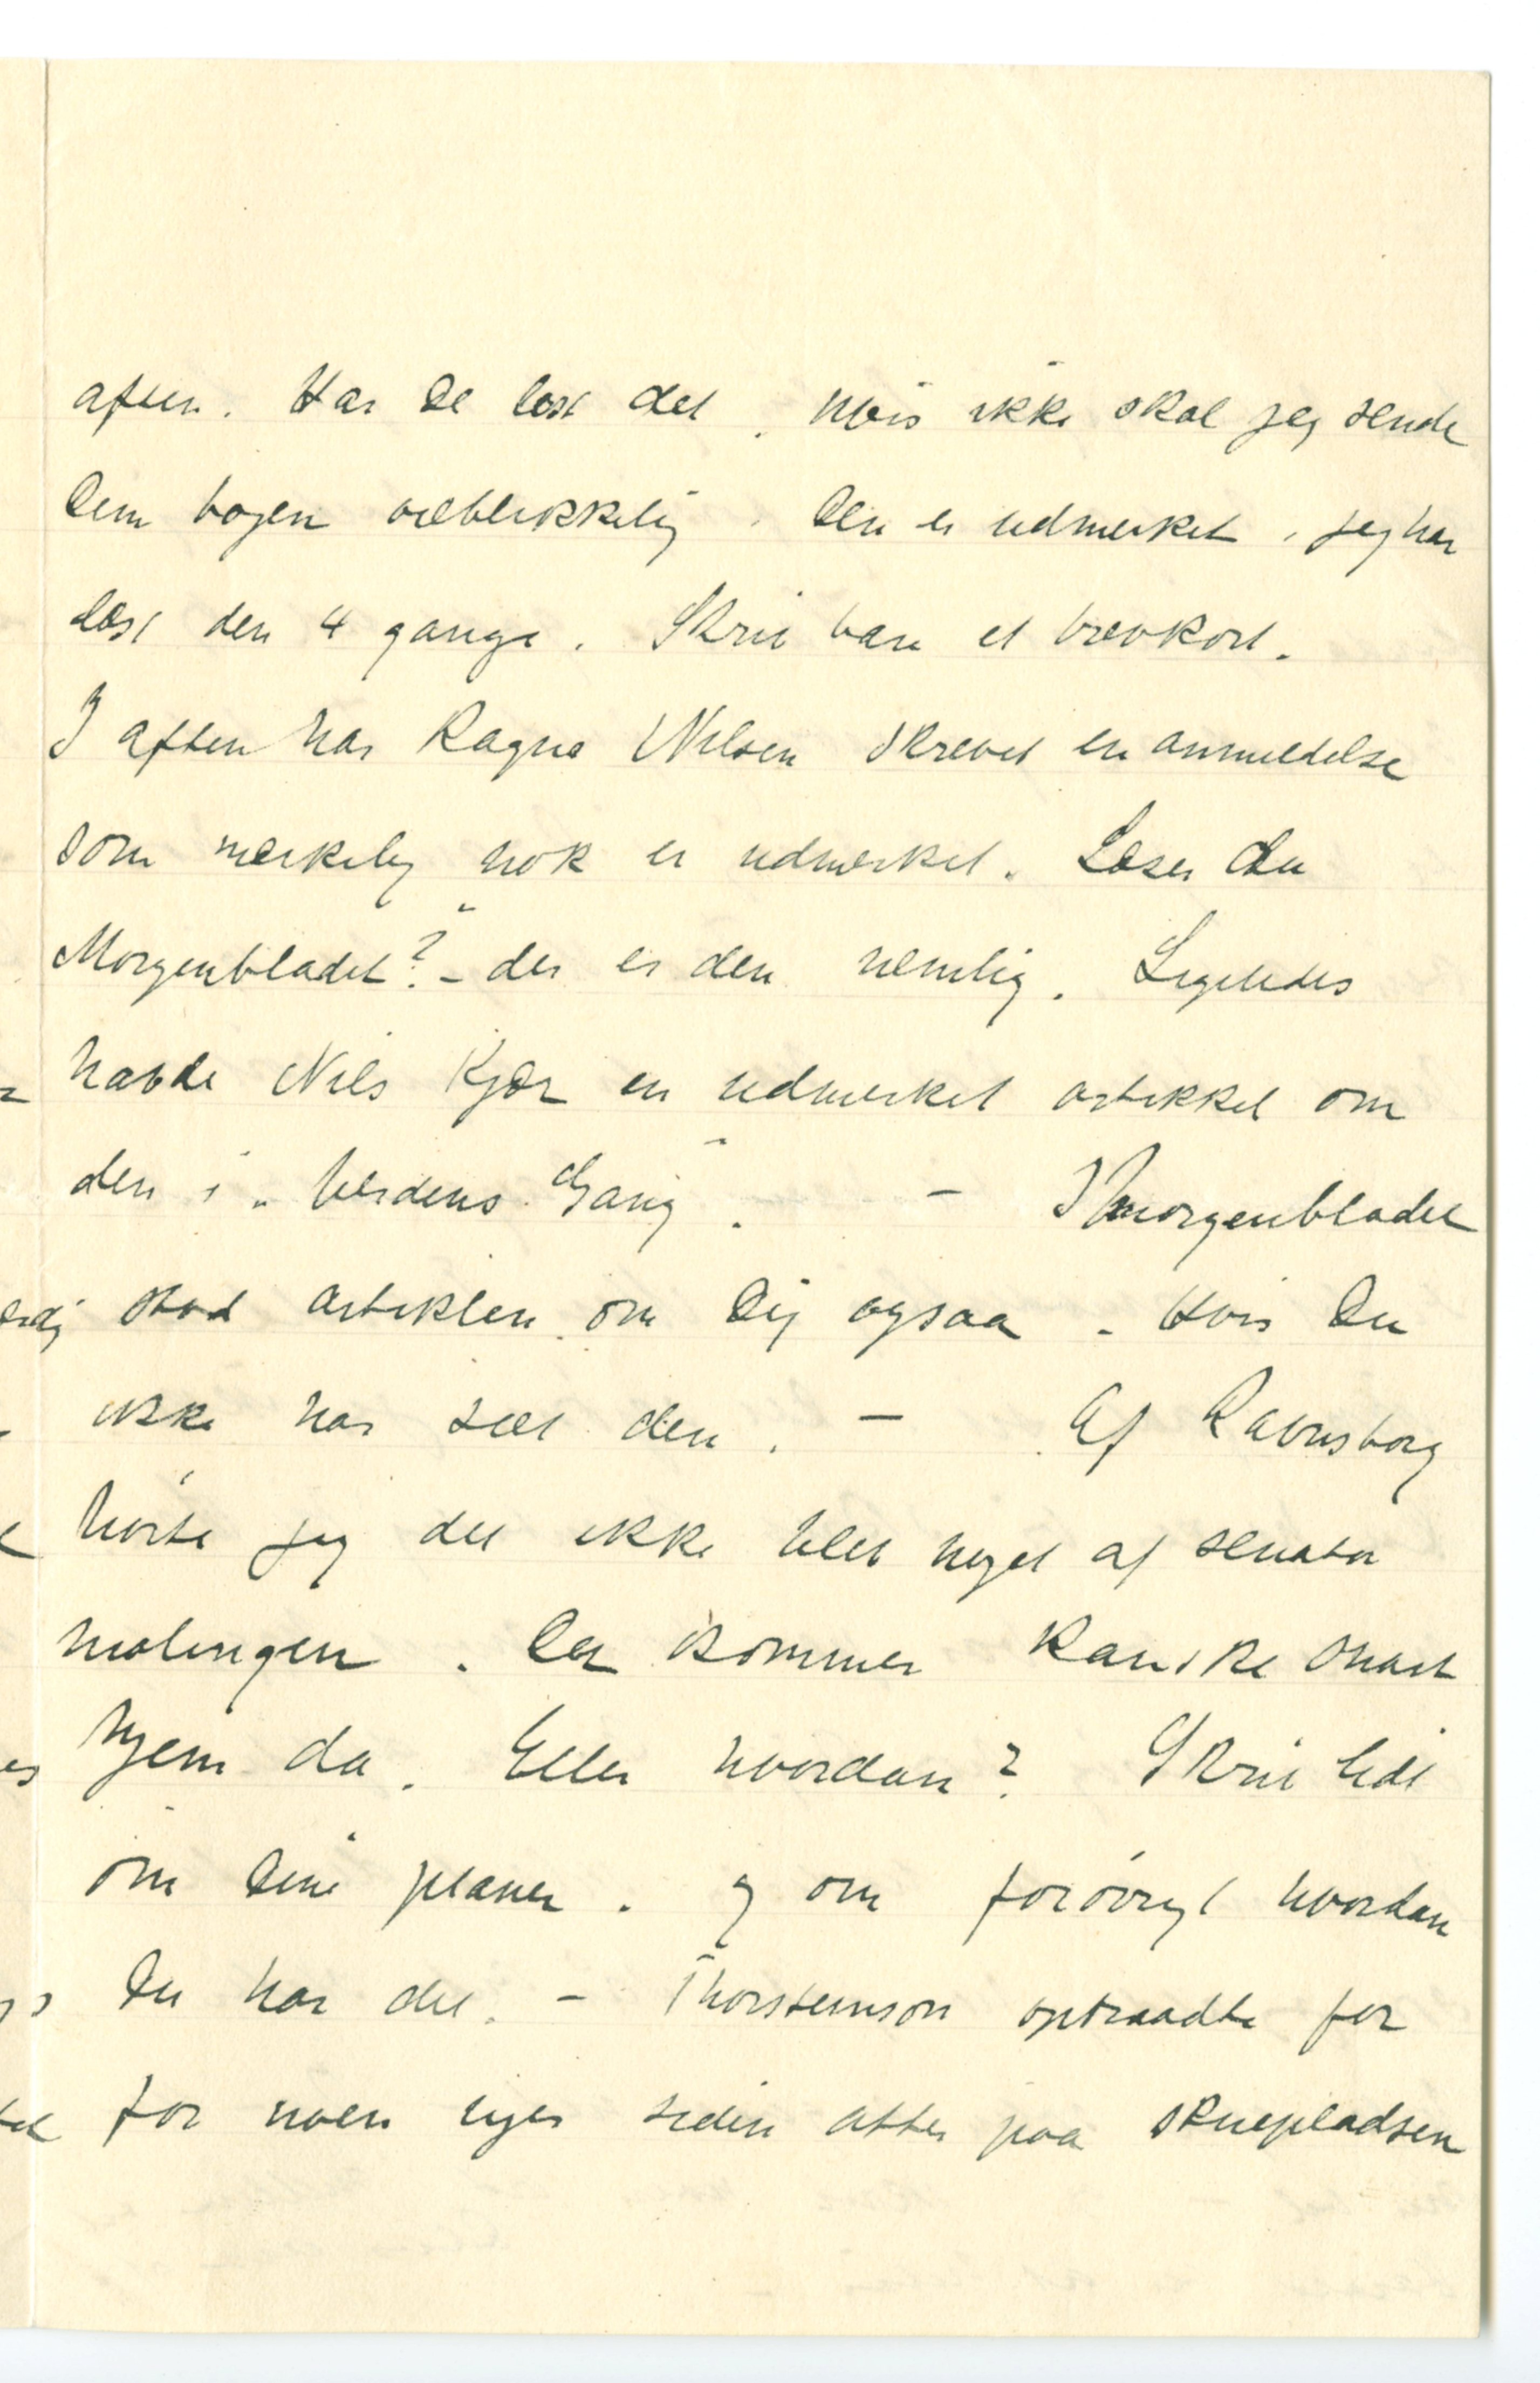 aften. Har De læst det. Hvis ikke skal jeg sende
Dem bogen øieblikkelig. Den er udmerket, jeg har
læst den 4 gange. Skriv bare et brevkort.
I aften har Ragna Nilsen skrevet en anmeldelse
som merkelig nok er udmerket. Læser du
Morgenbladet? - der er den nemlig. Ligeledes
havde Nils Kjær en udmerket artikkel om
den i „Verdens Gang". - I Morgenbladet
stod artiklen om Dig ogsaa. Hvis Du
ikke har seet den. - Af Ravnsborg
hørte jeg det ikke blev noget af senator
malingen. Du kommer kanske snart
hjem da. Eller hvordan? Skriv lidt
om Dine planer. og om forøvrigt hvordan
Du har det. - Thorsteinson optraadte for
for noen uger siden atter paa skuepladsen